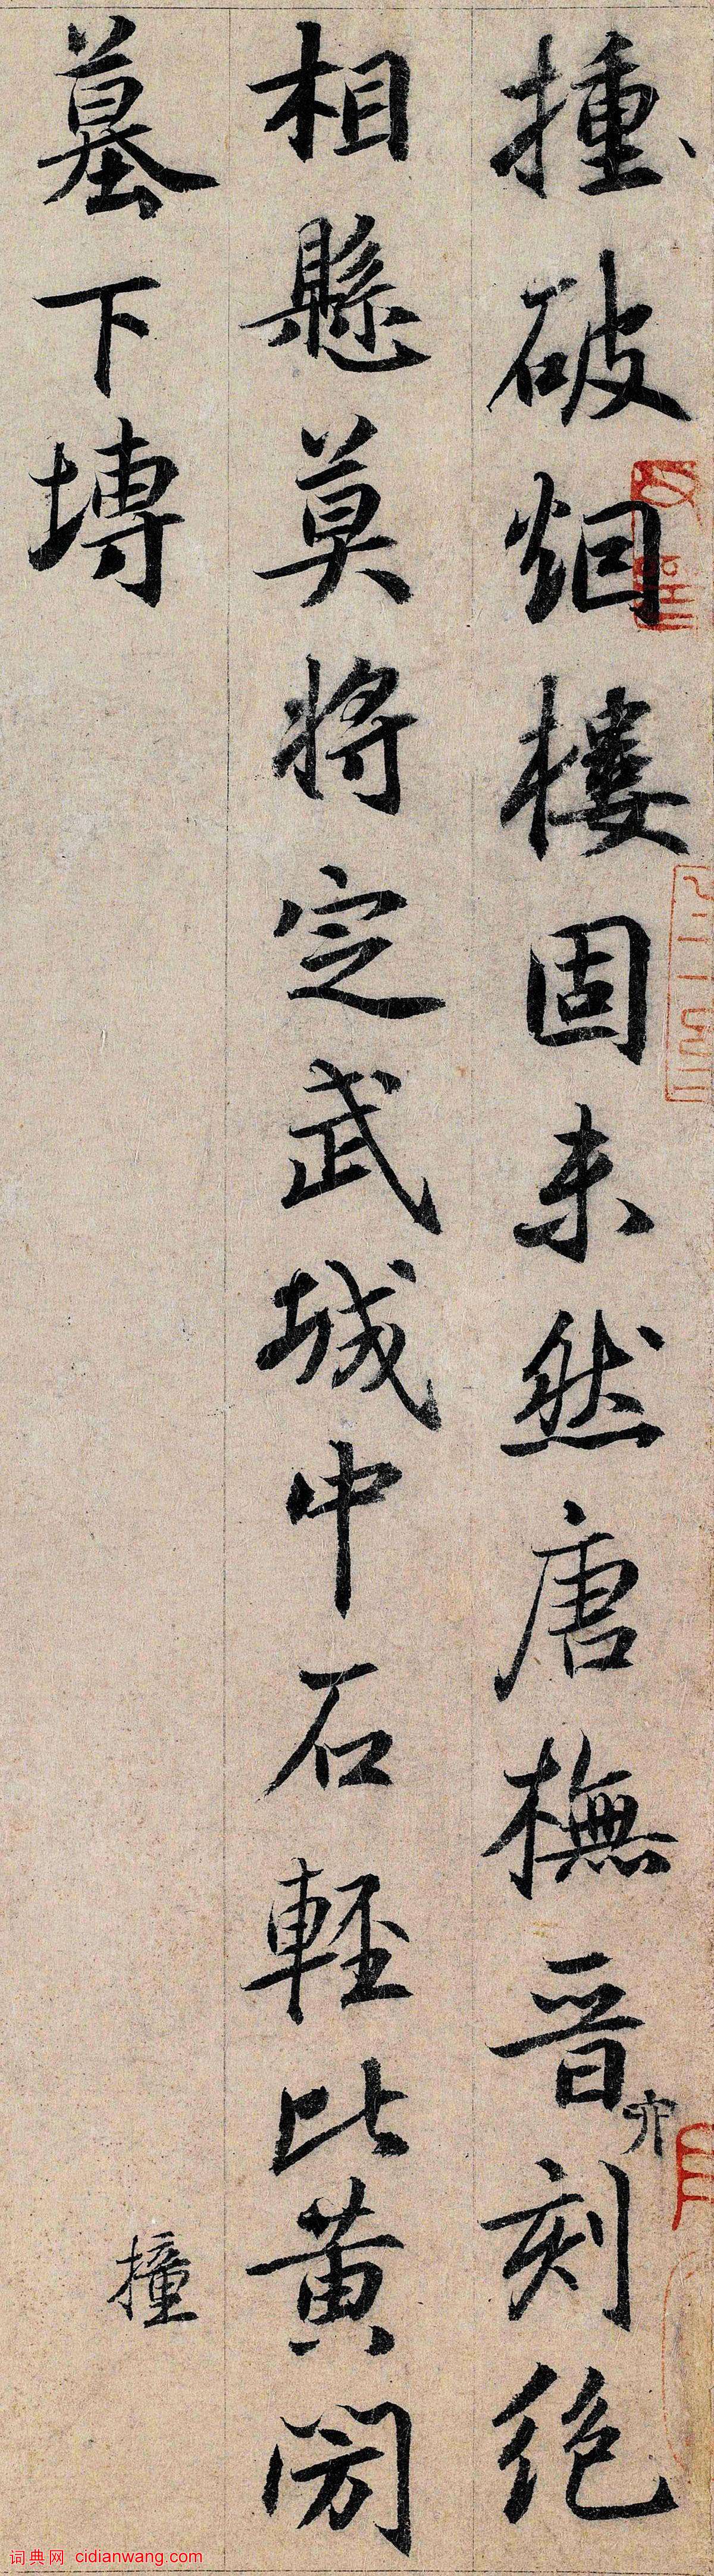 揰破烟樓固未然唐橅晋刻絶
相懸莫将定武城中石輕比黄閍
墓下塼
撞
词典网 cidianwang.com